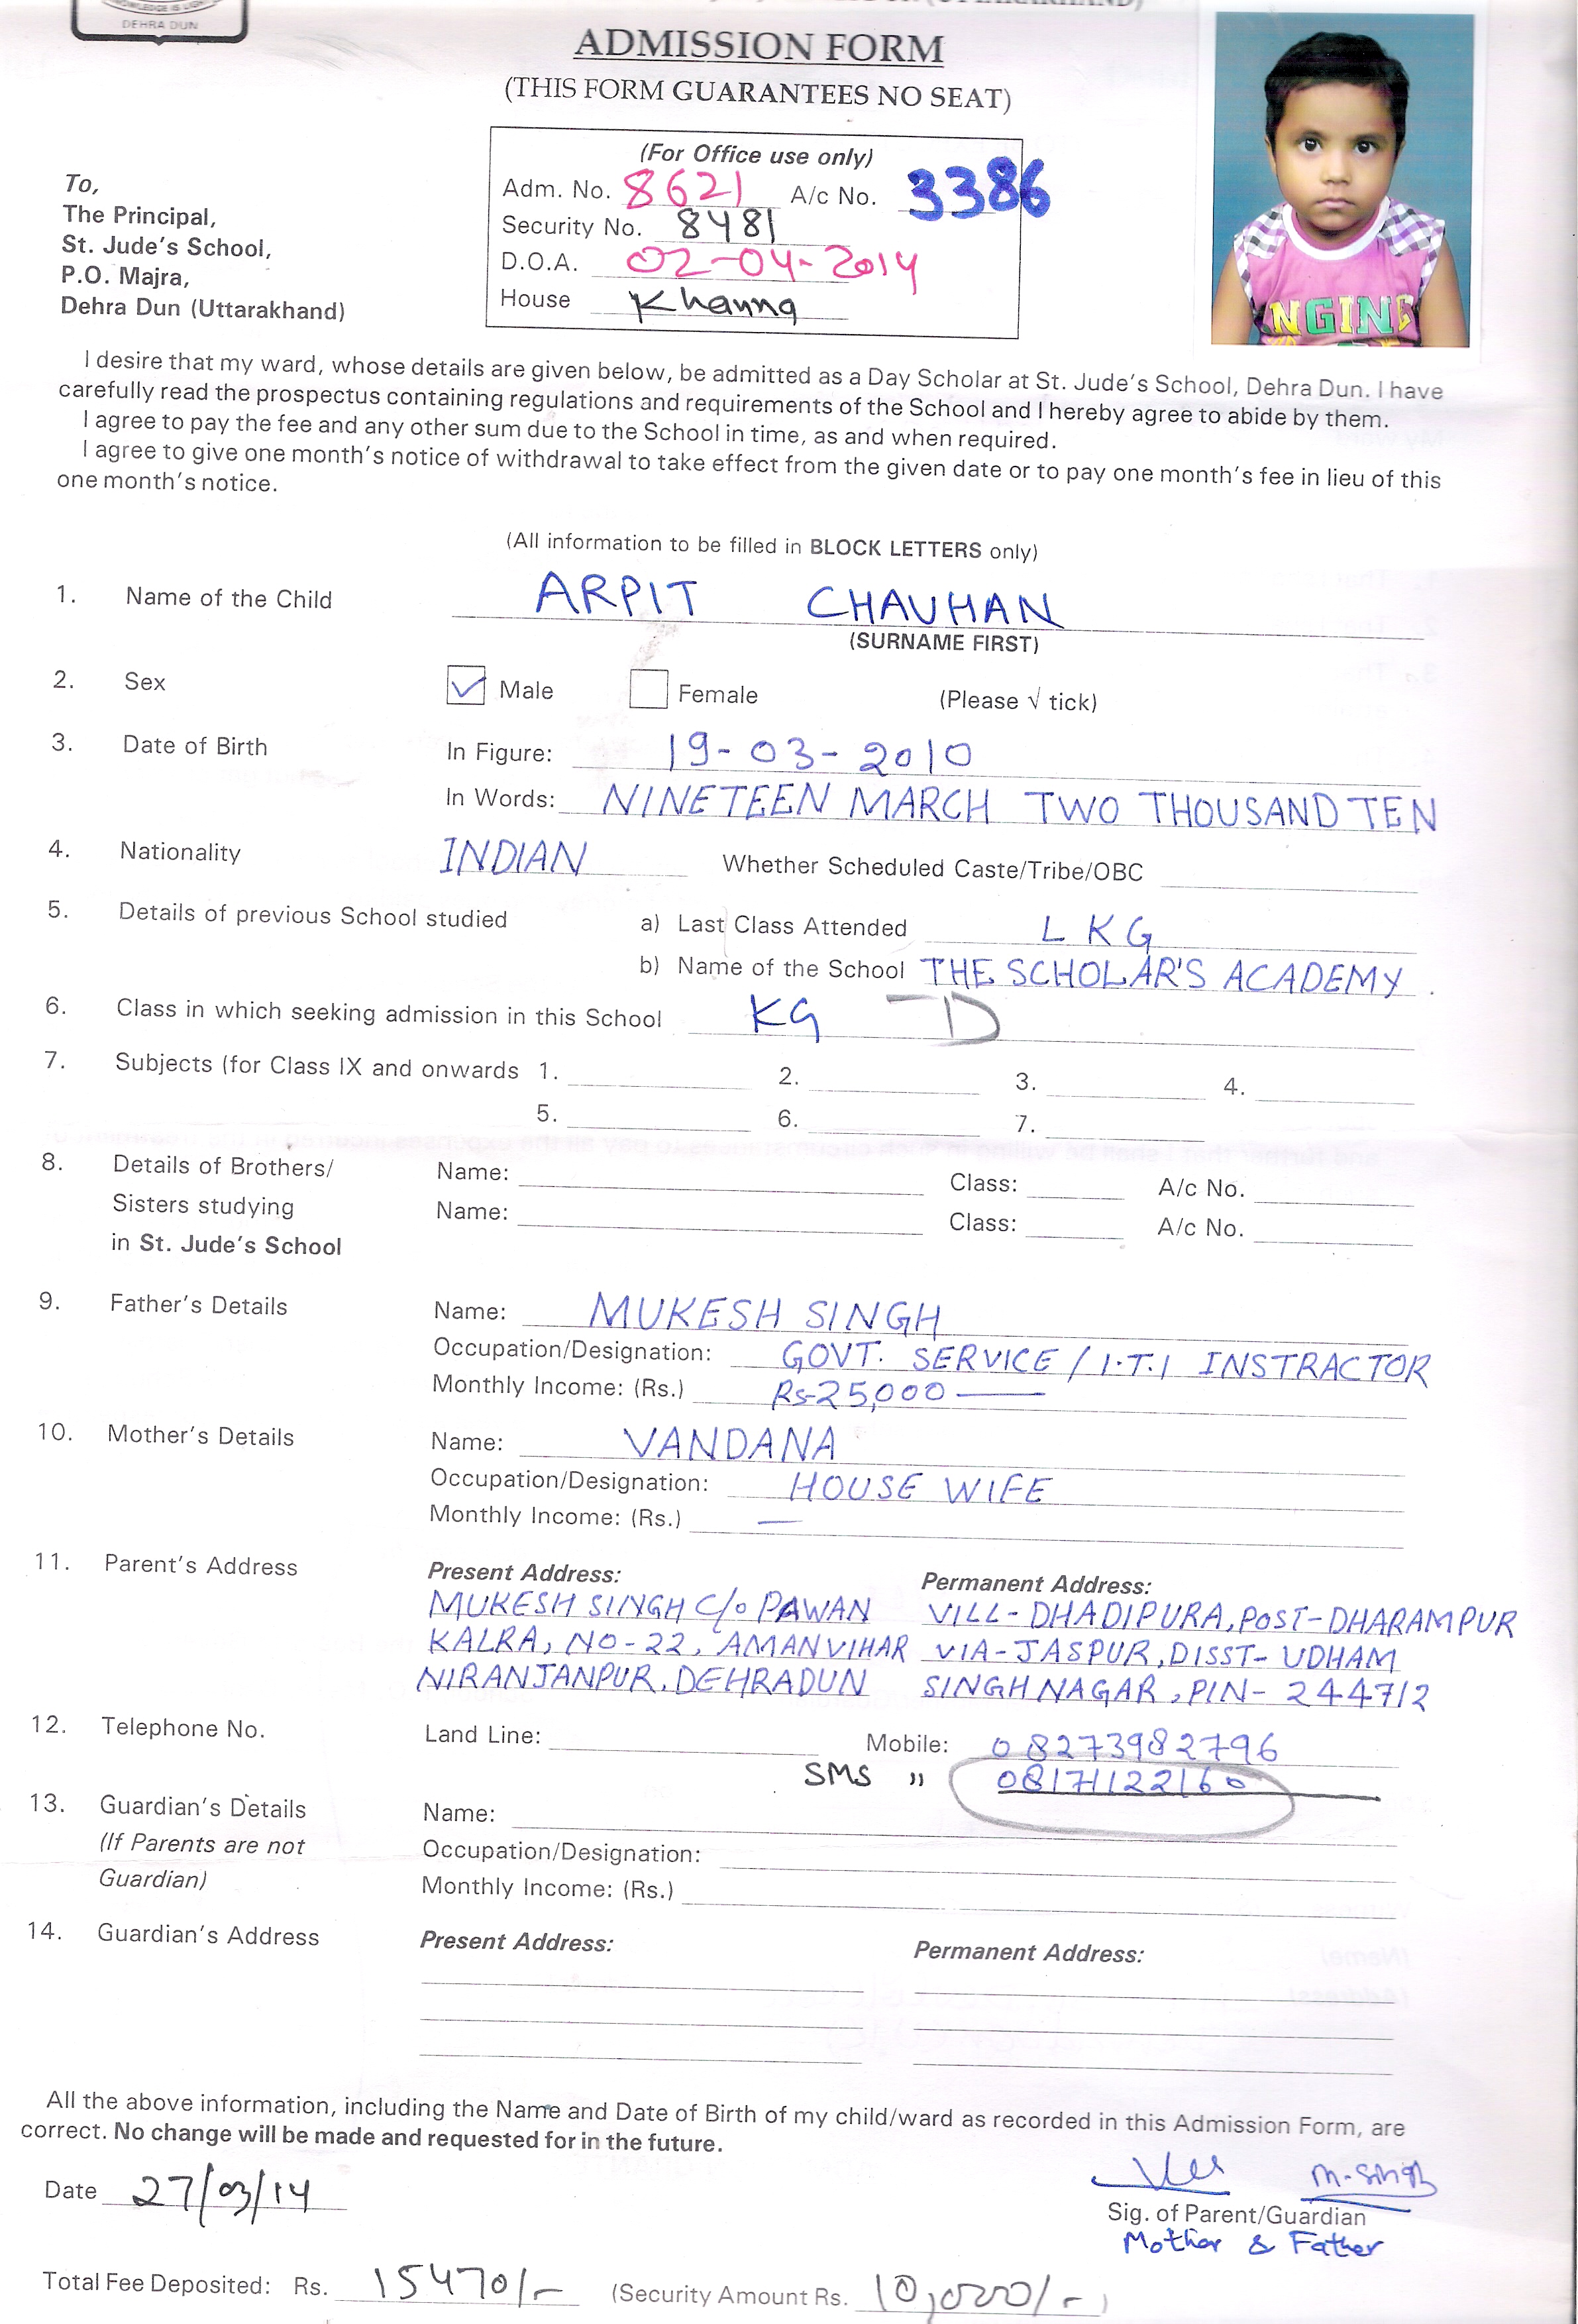 DEHRA DUN
ADMISSION FORM
(THIS FORM GUARANTEES NO SEAT)
(For Office use only)
Adm. No. 8621 A/c No. 3386
Security No. 8481
D.O.A. 02-04-2014
House Khanna
To,
The Principal,
St. Jude's School,
P.O. Majra,
Dehra Dun (Uttarakhand)
NGING
I desire that my ward, whose details are given below, be admitted as a Day Scholar at St. Jude's School, Dehra Dun. I have
carefully read the prospectus containing regulations and requirements of the School and I hereby agree to abide by them.
I agree to pay the fee and any other sum due to the School in time, as and when required.
I agree to give one month's notice of withdrawal to take effect from the given date or to pay one month's fee in lieu of this
one month's notice.
(All information to be filled in BLOCK LETTERS only)
1. Name of the Child ARPIT CHAUHAN
(SURNAME FIRST)
2. Sex Male Female (Please √ tick)
3. Date of Birth In Figure: 19-03-2010
In Words: NINETEEN MARCH TWO THOUSAND TEN
4. Nationality INDIAN Whether Scheduled Caste/Tribe/OBC
5. Details of previous School studied a) Last Class Attended LKG
b) Name of the School THE SCHOLAR'S ACADEMY.
6. Class in which seeking admission in this School KG - D
7. Subjects (for Class IX and onwards 1. 2. 3. 4.
5. 6. 7.
8. Details of Brothers/ Name: Class: A/c No.
Sisters studying Name: Class: A/c No.
in St. Jude's School
9. Father's Details Name: MUKESH SINGH
Occupation/Designation: GOVT. SERVICE / I.T.I INSTRACTOR
Monthly Income: (Rs.) Rs-25,000 —
10. Mother's Details Name: VANDANA
Occupation/Designation: HOUSE WIFE
Monthly Income: (Rs.) —
11. Parent's Address Present Address: Permanent Address:
MUKESH SINGH C/o PAWAN VILL-DHADIPURA, POST-DHARAMPUR
KALRA, NO-22, AMANVIHAR VIA-JASPUR, DISST-UDHAM
NIRANJANPUR, DEHRADUN SINGH NAGAR, PIN-244712
12. Telephone No. Land Line: Mobile: 08273982796
SMS " 08171122160
13. Guardian's Details Name:
(If Parents are not Occupation/Designation:
Guardian) Monthly Income: (Rs.)
14. Guardian's Address Present Address: Permanent Address:
All the above information, including the Name and Date of Birth of my child/ward as recorded in this Admission Form, are
correct. No change will be made and requested for in the future.
Date 27/03/14 M.Singh
Sig. of Parent/Guardian
Mother & Father
Total Fee Deposited: Rs. 15470/- (Security Amount Rs. 10,000/-)